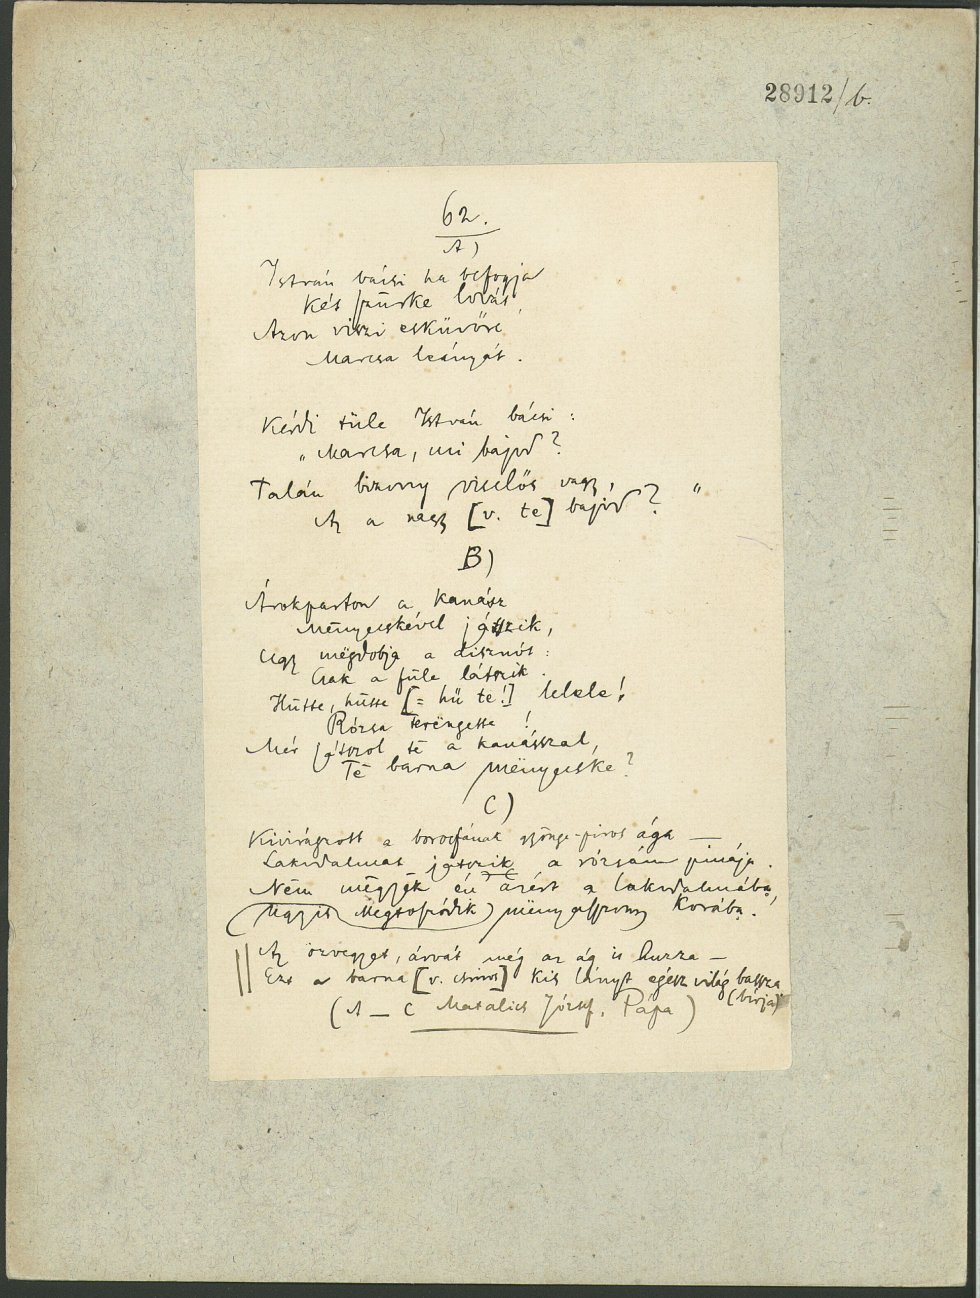 28912/b.
62.
A)
István bácsi ha befogja
Két szürke lovát,
Azon viszi esküvőre
Marcsa leányát.
Kérdi tüle István bácsi:
„Marcsa, mi bajod?
Talán bizony viselős vagy,
Az a nagy [v. te] bajod?"
B)
Árokparton a kanász
Mënyecskével játszik,
Ugy mëgdobja a disznót:
Csak a füle látszik.
Hütte, hütte [= hű te!] lelele!
Rózsa terëngette!
Mér játszol të a kanásszal,
Të barna mënyecske?
C)
Kivirágzott a borocfának gyönge-piros ága —
Lakodalmat játszik a rózsám pinája.
Nëm mëgyëk én azért a lakodalmába,
(Ugyis Mëgtosződik) mënyasszony korába.
Az özvegyet, árvát még az ág is huzza —
Ezt a barna [v. csinos] kis lányt egész világ bassza
(birja)
(A — C Matalics József, Pápa)